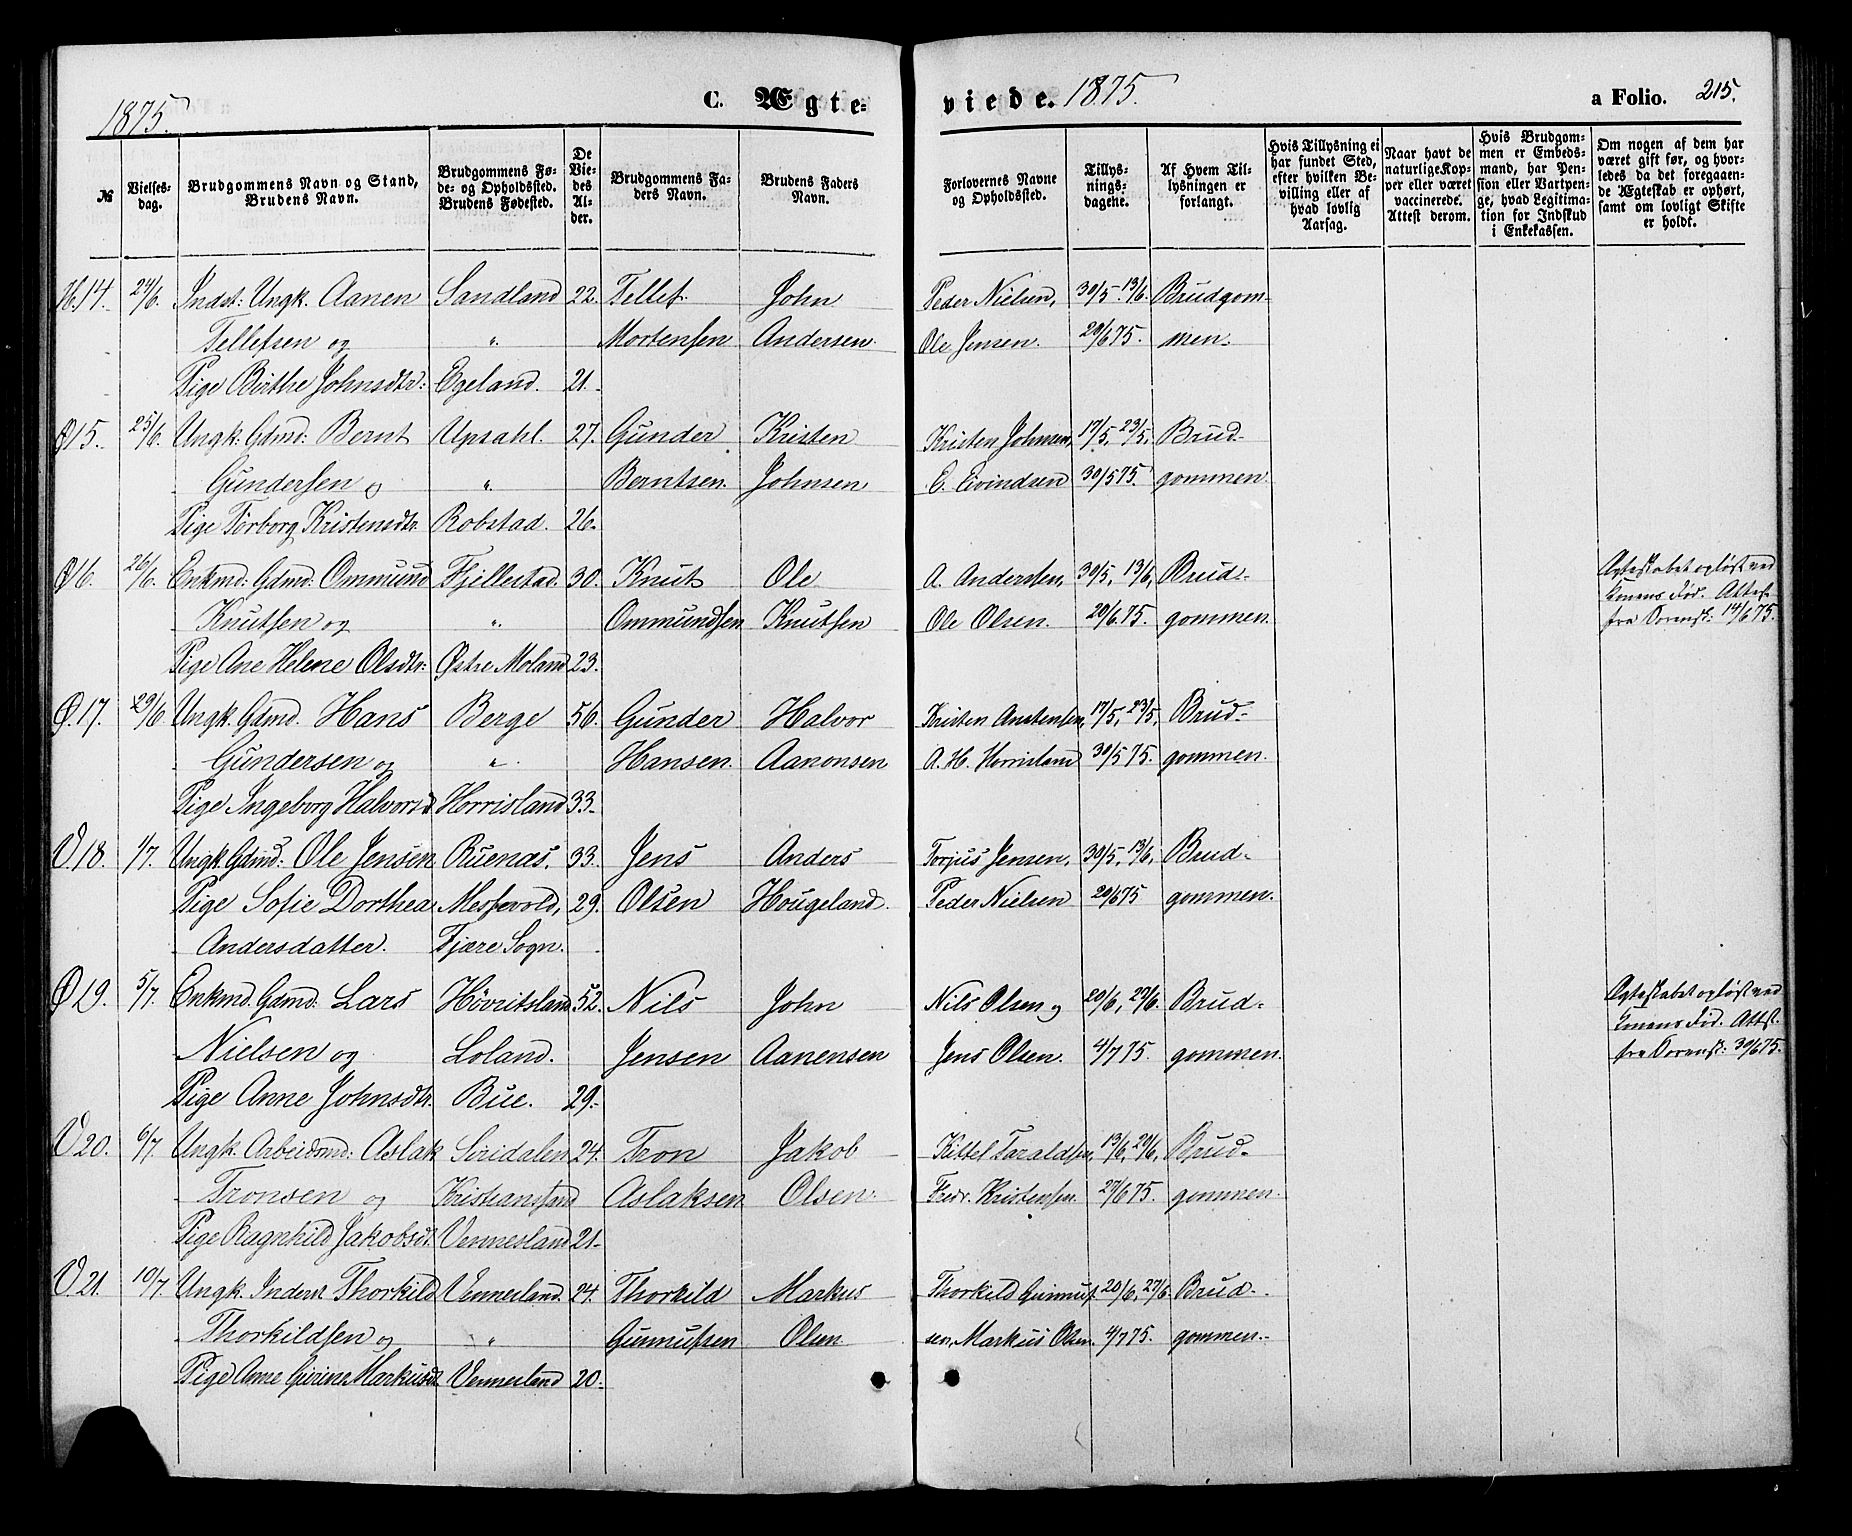 1875.
C. Ægte-
viede. 1875.
a Folio. 215.
№
Vielses-
dag.
Brudgommens Navn og Stand,
Brudens Navn.
Brudgommens Fø-
de- og Opholdssted.
Brudens Fødested.
De
Vie-
des
Al-
der.
Brudgommens Fa-
ders Navn.
Brudens Faders
Navn.
Forlovernes Navne
og Opholdssted.
Tillys-
nings-
dagene.
Af Hvem Til-
lysningen er
forlangt.
Hvis Tillysning ei
har fundet Sted,
efter hvilken Be-
villing eller af
hvad lovlig
Aarsag.
Naar havt de
naturlige Kop-
per eller været
vaccinerede.
Attest derom.
Hvis Brudgom-
men er Embeds-
mand, har Pen-
sion eller Vartpen-
ge, hvad Legitima-
tion for Indskud
i Enkekassen.
Om nogen af dem har
været gift før, og hvor-
ledes da det foregaaen-
de Ægteskab er ophørt,
samt om lovligt Skifte
er holdt.
14. 24/6. Indst: Ungk. Aanen Sandland 22. Tellef John Peder Nielsen, 30/5. 13/6. Brudgom-
Tellefsen og " Mortensen Andersen. Ole Jensen. 20/6 75. men.
Pige Birthe Johnsdtr: Egeland. 21.
Ø 15. 25/6. Ungk: Gdmd: Bernt Upsahl. 27. Gunder Kristen Kristen Johnsen, 17/5, 23/5, Brud-
Gundersen og " Berntsen. Johnsen E. Eivindsen 30/5 75. gommen.
Pige Torborg Kristensdtr. Robstad. 26.
Ø 16. 26/6. Enkmd: Gdmd: Ommund Fjellestad. 30. Knut Ole A. Andersen, 30/5, 13/6, Brud- Ægteskabet opløst ved
Knutsen og " Ommundsen Knutsen Ole Olsen. 20/6 75. gommen. Konens Død. Attest
fra Sorensk: 14/6 75.
Pige Ane Helene Olsdtr: Østre Moland 23.
Ø. 17. 29/6. Ungk. Gdmd. Hans Berge 56. Gunder Halvor Kristen Anstensen, 17/5, 23/5, Brud-
Gundersen og " Hansen. Aanonsen A. H. Horrisland 30/5 75. gommen.
Pige Ingeborg Halvorsd Horrisland 33.
V 18. 1/7. Ungk. Gdmd: Ole Jensen Ruenæs. 33. Jens Anders Torjus Jensen, 30/5, 13/6, Brud-
Pige Sofie Dorthea Messevold, 29. Olsen Hougeland. Peder Nielsen 20/6 75 gommen.
Andersdatter. Fjære Sogn.
Ø 19. 5/7. Enkmd. Gdmd: Lars Hövritsland 52. Nils John Nils Olsen og 20/6, 27/6. Brud- Ægteskabet opløst ved
Nielsen og Loland. Jensen Aanensen Jens Olsen. 4/7 75. gommen. Konens Død. Attst.
fra Sorensk: 30/6 75.
Pige Anne Johnsdtr. Bue. 29.
V 20. 6/7. Ungk. Arbeidsmd: Aslak Siridalen 24. Tron Jakob Kittel Taraldsen, 13/6, 20/6, Brud-
Tronsen og Kristianssand Aslaksen Olsen. Fredr. Kristensen. 27/6 75. gommen.
Pige Ragnhild Jakobsdt. Vennesland 21.
V 21. 10/7. Ungk. Inderst Thorkild Vennesland. 24. Thorkild Markus Thorkild Gunnuf- 20/6, 27/6. Brud-
Thorkildsen og " Gunnufsen Olsen. sen, Markus Olsen. 4/7 75. gommen.
Pige Anne Gurine Markusdt. Vennesland 20.